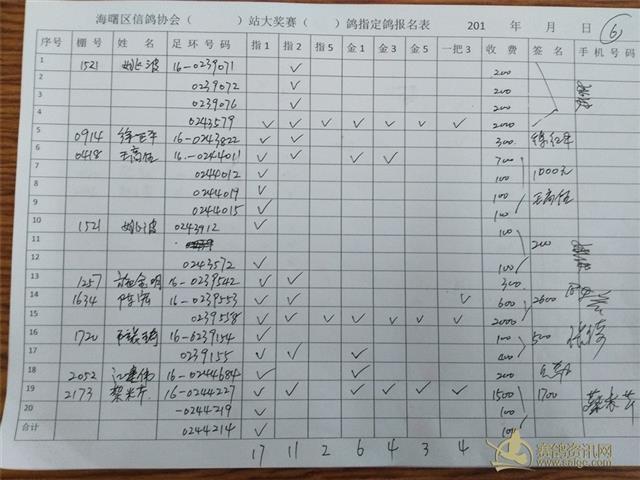 海曙区信鸽协会（ ）站大奖赛（ ）鸽指定鸽报名表 201 年 月 日 6
序号 棚号 姓 名 足 环 号 码 指1 指2 指5 金1 金3 金5 一把3 收 费 签 名 手 机 号 码
1 1521 16-0239071 ✓ 200
2 0239072 ✓ 200
3 0239076 ✓ 200
4 0243579 ✓ ✓ ✓ ✓ ✓ ✓ ✓ 2000
5 0914 16-0243822 ✓ ✓ 300
6 0418 王高伍 16-0244011 ✓ ✓ ✓ ✓ 700
7 0244012 ✓ 100 1000元
8 0244019 ✓ 100 王高伍
9 0244015 ✓ 100
10 1521 0243912 ✓ 100
11 200
12 0243572 ✓ 100
13 1257 16-0239542 ✓ ✓ 300
14 1634 16-0239553 ✓ ✓ ✓ 600 2600
15 0239558 ✓ ✓ ✓ ✓ ✓ ✓ ✓ 2000
16 1720 16-0239154 ✓ 100 500
17 0239155 ✓ ✓ ✓ 400
18 2052 16-0244684 ✓ ✓ 200
19 2173 16-0244227 ✓ ✓ ✓ ✓ ✓ ✓ 1500 1700
20 -0244219 ✓ 100
合计 0244214 ✓ 100
17 11 2 6 4 3 4
赛鸽资讯网
www.saige.com